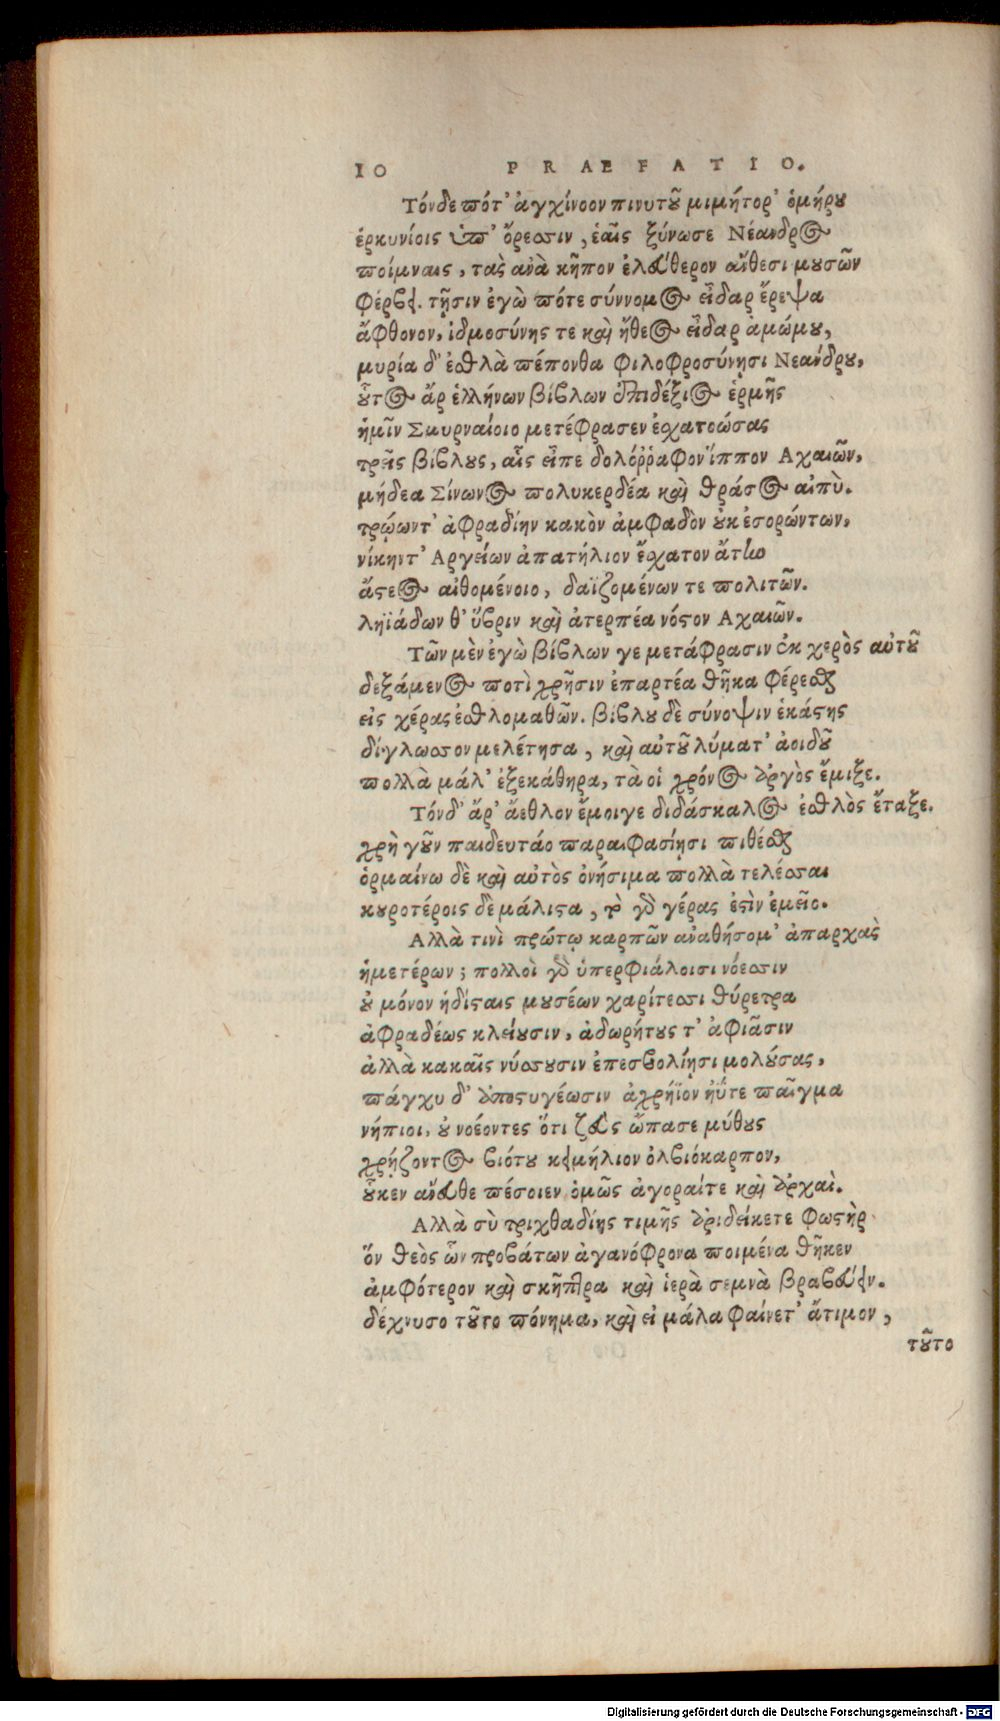 10 PRAEFATIO.
Τόνδε πότ᾽ ἀγχίνοον πινυτοῦ μιμήτορ᾽ ὁμήρου
ἑρκυνίοις ὑπ᾽ ὄρεσσιν, ἑαῖς ξύνωσε Νέανδρος
ποίμναις, τὰς ἀνὰ κῆπον ἐλεύθερον ἄνθεσι μουσῶν
φέρβει. τῇσιν ἐγὼ πότε σύννομος εἶδαρ ἔρεψα
ἄφθονον, ἰδμοσύνης τε καὶ ἤθεος εἶδαρ ἀμώμου,
μυρία δ᾽ ἐσθλὰ πέπονθα φιλοφροσύνῃσι Νεάνδρου,
οὗτος ἄρ ἑλλήνων βίβλων ἐπιδέξιος ἑρμῆς
ἡμῖν Σμυρναίοιο μετέφρασεν ἐσχατοώσας
τρεῖς βίβλους, αἷς εἶπε δολόῤῥαφον ἵππον Αχαιῶν,
μήδεα Σίνωνος πολυκερδέα καὶ θράσος αἰπὺ.
τρώωντ᾽ ἀφραδίην κακὸν ἀμφαδὸν οὐκ ἐσορώντων,
νίκηντ᾽ Αργείων ἀπατήλιον ἔσχατον ἄτην
ἄστεος αἰθομένοιο, δαϊζομένων τε πολιτῶν.
ληϊάδων θ᾽ ὕβριν καὶ ἀτερπέα νόστον Αχαιῶν.
Τῶν μὲν ἐγὼ βίβλων γε μετάφρασιν ἐκ χερὸς αὐτοῦ
δεξάμενος ποτὶ χρῆσιν ἐπαρτέα θῆκα φέρεσθαι
εἰς χέρας ἐσθλομαθῶν. βίβλου δὲ σύνοψιν ἑκάστης
δίγλωσσον μελέτησα, καὶ αὐτοῦ λύματ᾽ ἀοιδοῦ
πολλὰ μάλ᾽ ἐξεκάθηρα, τὰ οἱ χρόνος ἀργὸς ἔμιξε.
Τόνδ᾽ ἄρ᾽ ἄεθλον ἔμοιγε διδάσκαλος ἐσθλὸς ἔταξε.
χρὴ γοῦν παιδευτάο παραιφασίῃσι πιθέσθαι
ὁρμαίνω δὲ καὶ αὐτὸς ὀνήσιμα πολλὰ τελέσσαι
κουροτέροις δὲ μάλιστα, τὸ γὰρ γέρας ἐστὶν ἐμεῖο.
Αλλὰ τινὶ πρώτῳ καρπῶν ἀναθήσομ᾽ ἀπαρχὰς
ἡμετέρων; πολλοὶ γὰρ ὑπερφιάλοισι νόεσσιν
οὐ μόνον ἡδίσταις μουσέων χαρίτεσσι θύρετρα
ἀφραδέως κλείουσιν, ἀδωρήτους τ᾽ ἀφιᾶσιν
ἀλλὰ κακαῖς νύσσουσιν ἐπεσβολίῃσι μολούσας,
πάγχυ δ᾽ ἀποστυγέωσιν ἀχρήϊον ἠΰτε παῖγμα
νήπιοι, οὐ νοέοντες ὅτι ζεὺς ὤπασε μύθους
χρῄζοντος βιότου κειμήλιον ὀλβιόκαρπον,
οὗκεν ἄνευθε πέσοιεν ὁμῶς ἀγοραίτε καὶ ἀρχαὶ.
Αλλὰ σὺ τριχθαδίης τιμῆς ἀριδείκετε φωστὴρ
ὅν θεὸς ὧν προβάτων ἀγανόφρονα ποιμένα θῆκεν
ἀμφότερον καὶ σκῆπτρα καὶ ἱερὰ σεμνὰ βραβεύειν.
δέχνυσο τοῦτο πόνημα, καὶ εἰ μάλα φαίνετ᾽ ἄτιμον,
τοῦτο
Digitalisierung gefördert durch die Deutsche Forschungsgemeinschaft - DFG